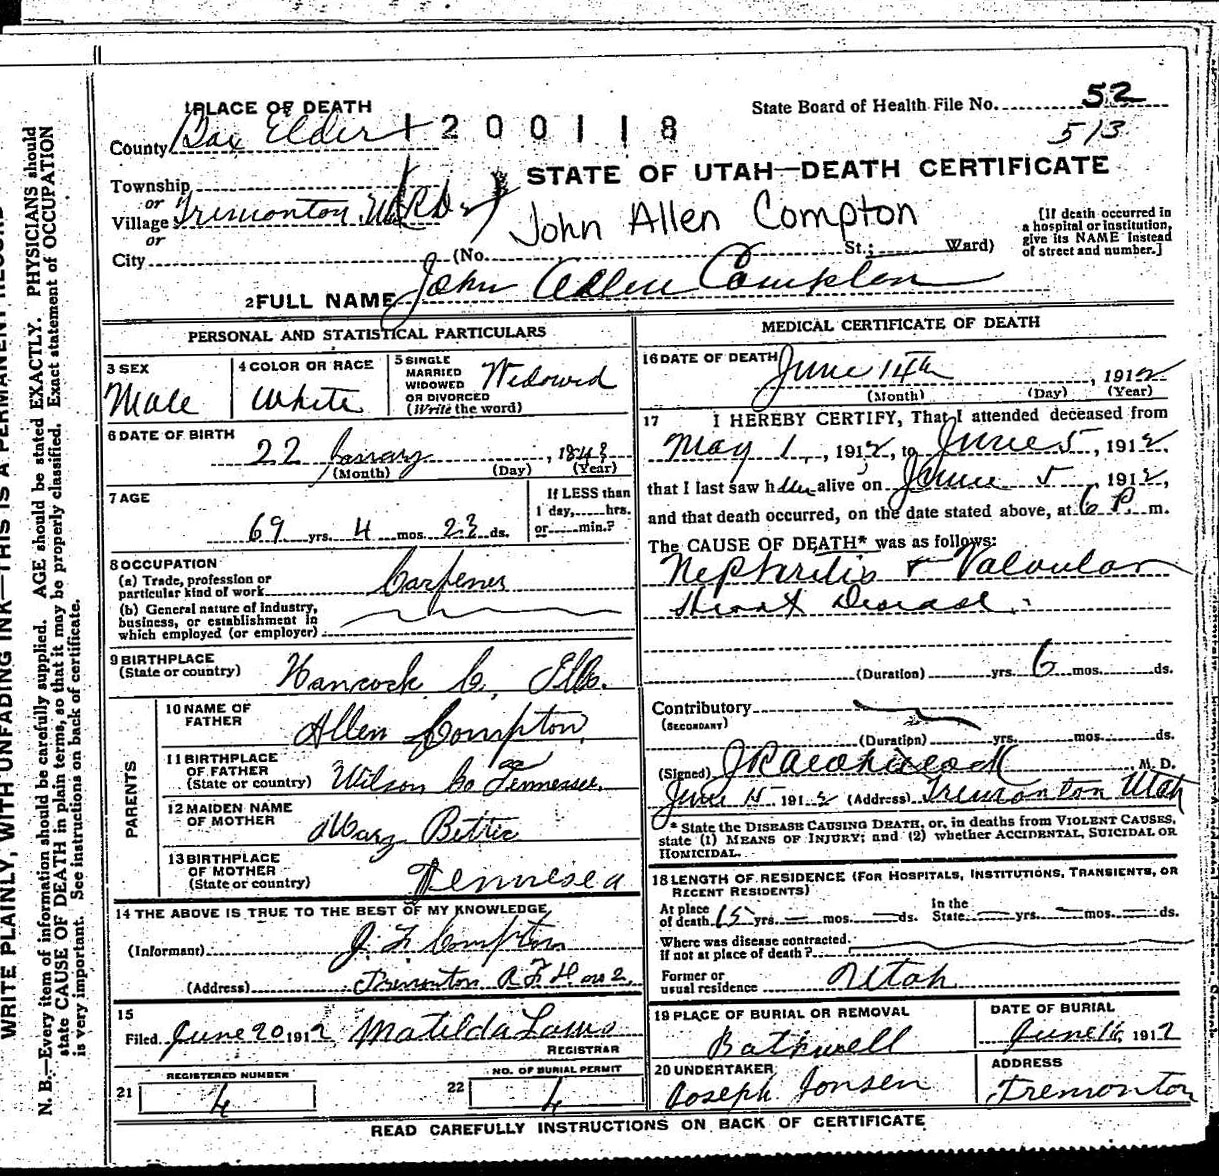 1 PLACE OF DEATH
State Board of Health File No. 52
County Box Elder
1200118
513
STATE OF UTAH—DEATH CERTIFICATE
Township
or
Village Tremonton
John Allen Compton
[If death occurred in
a hospital or institution,
give its NAME instead
of street and number.]
or
City (No. St.; Ward)
2 FULL NAME John Allen Compton
PERSONAL AND STATISTICAL PARTICULARS
3 SEX
Male
4 COLOR OR RACE
White
5 SINGLE
MARRIED
WIDOWED
OR DIVORCED
(Write the word)
Widowed
6 DATE OF BIRTH
22 , 1843
(Month) (Day) (Year)
7 AGE
69 yrs. 4 mos. 23 ds.
If LESS than
1 day, hrs.
or min.?
8 OCCUPATION
(a) Trade, profession or
particular kind of work
(b) General nature of industry,
business, or establishment in
which employed (or employer)
9 BIRTHPLACE
(State or country)
Hancock Co, Ills.
PARENTS
10 NAME OF
FATHER
Allen Compton
11 BIRTHPLACE
OF FATHER
(State or country)
Wilson Co Tennessee,
12 MAIDEN NAME
OF MOTHER
Mary
13 BIRTHPLACE
OF MOTHER
(State or country)
14 THE ABOVE IS TRUE TO THE BEST OF MY KNOWLEDGE
(Informant) Compton
(Address) Tremonton
15
Filed June 20 1912 Matilda
REGISTRAR
21
REGISTERED NUMBER
4
22
NO. OF BURIAL PERMIT
4
MEDICAL CERTIFICATE OF DEATH
16 DATE OF DEATH
June 14th , 1912
(Month) (Day) (Year)
17 I HEREBY CERTIFY, That I attended deceased from
May 1, 1912, to June 5, 1912
that I last saw h alive on June 5, 1912,
and that death occurred, on the date stated above, at 6 P. m.
The CAUSE OF DEATH* was as follows:
Nephritis & Valvular
Heart Disease.
(Duration) yrs. 6 mos. ds.
Contributory
(SECONDARY)
(Duration) yrs. mos. ds.
(Signed) M. D.
June 15 1912 (Address) Tremonton Utah
* State the DISEASE CAUSING DEATH, or, in deaths from VIOLENT CAUSES,
state (1) MEANS OF INJURY; and (2) whether ACCIDENTAL, SUICIDAL OR
HOMICIDAL.
18 LENGTH OF RESIDENCE (FOR HOSPITALS, INSTITUTIONS, TRANSIENTS, OR
RECENT RESIDENTS)
At place
of death 15 yrs. mos. ds.
In the
State yrs. mos. ds.
Where was disease contracted.
If not at place of death?
Former or
usual residence Utah
19 PLACE OF BURIAL OR REMOVAL
DATE OF BURIAL
June 16, 1912
20 UNDERTAKER
Joseph Jonsen
ADDRESS
Tremonton
READ CAREFULLY INSTRUCTIONS ON BACK OF CERTIFICATE
WRITE PLAINLY, WITH UNFADING INK—THIS IS A PERMANENT RECORD
N. B.—Every item of information should be carefully supplied. AGE should be stated EXACTLY. PHYSICIANS should
state CAUSE OF DEATH in plain terms, so that it may be properly classified. Exact statement of OCCUPATION
is very important. See instructions on back of certificate.